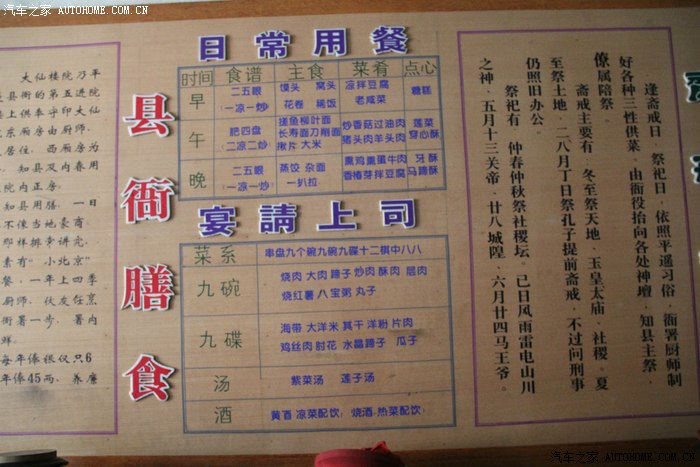 汽车之家 AUTOHOME.COM.CN
县衙膳食
大仙楼院乃平
县衙的第五进院
楼上供奉守印大仙
东厢房由厨师、
居住，西厢房为
知县及内眷用
院内正房。
知县用膳，一日
不像当地豪商
那样排室讲究，
素有"小北京"
餐，一年上四季
厨师、伙友在京
衙署一步，署内
鲜。
每年俸银仅只6
年俸45两，养廉
日常用餐
时间 食谱 主食 菜肴 点心
早 二五眼 (一凉一炒) 馍头 窝头 花卷 稀饭 凉拌豆腐 老咸菜 糖糕
午 肥四盘 二凉二炒 搓鱼柳叶面 长寿面刀削面 揪片 大米 炒香菇过油肉 猪头肉羊头肉 莲菜 穿心酥
晚 二五眼 (一凉一炒) 蒸饺 杂面 一扒拉 熏鸡熏蛋牛肉 香椿芽拌豆腐 牙酥 马蹄酥
宴請上司
菜系 串盘九个碗九碗九碟十二棋中八八
九碗 烧肉 大肉 蹄子 炒肉 酥肉 层肉
烧红薯 八宝粥 丸子
九碟 海带 大洋米 其干 洋粉 片肉
鸡丝肉 肘花 水晶蹄子 瓜子
汤 紫菜汤 莲子汤
酒 黄酒 凉菜配饮; 烧酒,热菜配饮)
逢斋戒日，祭祀日，依照平遥习俗，衙署厨师制
好各种三性供菜、由衙役抬向各处神壇，知县主祭，
僚属陪祭。
斋戒主要有：冬至祭天地、玉皇太庙、社稷。夏
至祭土地，二八月丁日祭孔子提前斋戒，不过问刑事
仍照旧办公。
祭祀有：仲春仲秋祭社稷坛。己日风雨雷电山川
之神，五月十三关帝，廿八城隍，六月廿四马王爷。
汽车之家 AUTOHOME.COM.CN